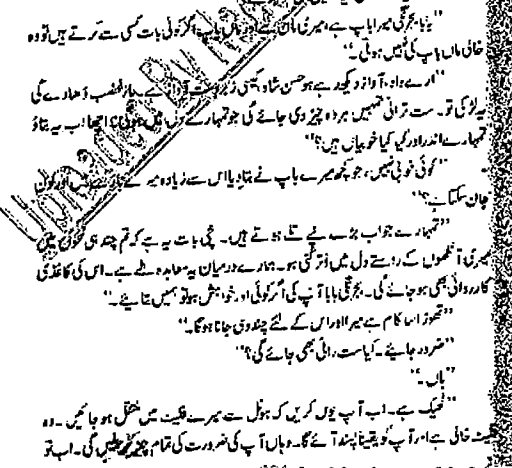 "بابا، بجرنگی میرا باپ ہے، میری ماں ہے اور ماں باپ اگر کوئی بات کسی سے کرتے ہیں تو وہ
خالی ماں باپ کی نہیں ہوتی۔"
"ارے واہ، آواز دیکھ رہے ہو حسن شاہ، کتنی زبردست آواز ہے۔ غضب ڈھا دے گی
یہ لڑکی تو۔ ست رانی تمہیں ہر وہ چیز دی جائے گی جو تمہارے اچھا اب یہ بتاؤ
تمہارے اندر اور کیا کیا خوبیاں ہیں؟"
"کوئی خوبی نہیں، جو کچھ میرے باپ نے بتا دیا اس سے زیادہ میرے بارے میں اور کون
جان سکتا ہے؟"
"تمہارے جواب بڑے نپے تلے ہوتے ہیں۔ سچی بات یہ ہے کہ تم چند ہی لمحوں میں
میری آنکھوں کے راستے دل میں اتر گئی ہو۔ ہمارے درمیان یہ معاہدہ طے ہے۔ اس کی کاغذی
کارروائی بھی ہو جائے گی۔ بجرنگی بابا آپ کی اگر کوئی اور خواہش ہو تو ہمیں بتایئے۔"
"تھوڑا سا کام ہے میرا اور اس کے لئے چندوسی جانا ہوگا۔"
"ضرور جایئے۔ کیا ست رانی بھی جائے گی؟"
"ہاں۔"
"ٹھیک ہے۔ اب آپ یوں کریں کہ ہوٹل سے میرے فلیٹ میں منتقل ہو جائیں۔ وہ
فلیٹ خالی ہے اور آپ کو یقیناً پسند آئے گا۔ وہاں آپ کی ضرورت کی تمام چیزیں گی۔ اب تو